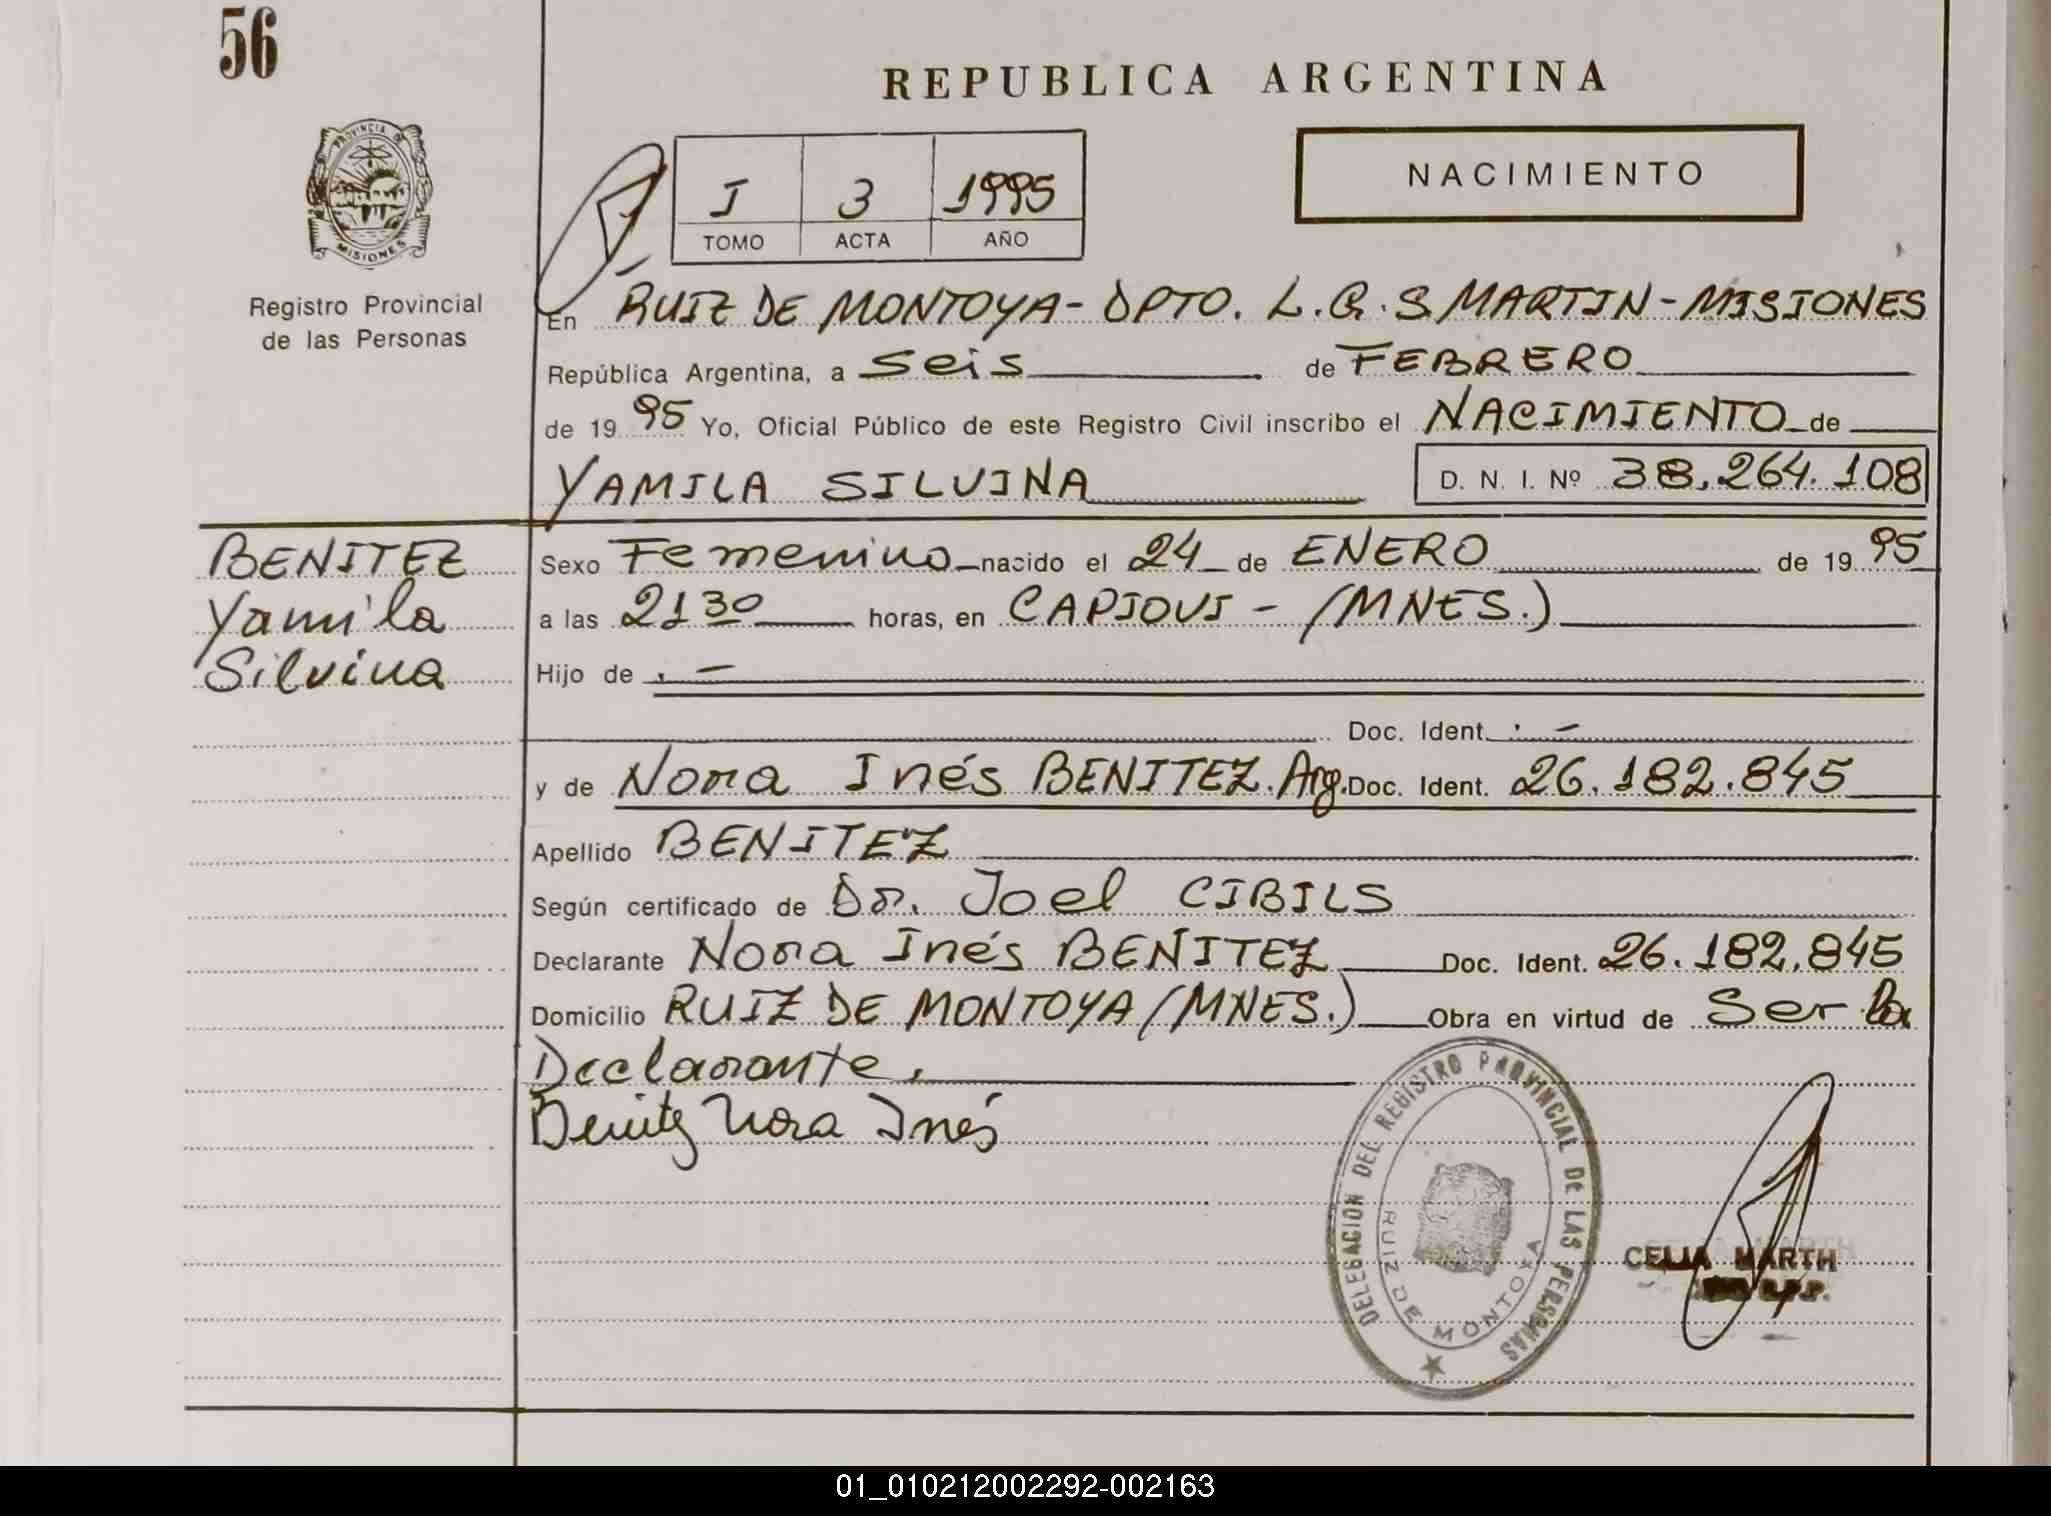 56
REPUBLICA ARGENTINA
PROVINCIA DE
MISIONES
I 3 1995
TOMO ACTA AÑO
NACIMIENTO
Registro Provincial
de las Personas
En RUIZ DE MONTOYA - DPTO. L.G.S MARTIN - MISIONES
República Argentina, a seis de FEBRERO
de 19 95 Yo, Oficial Público de este Registro Civil inscribo el NACIMIENTO de
YAMILA SILVINA D. N. I. Nº 38.264.108
BENITEZ
Yamila
Silvina
Sexo Femenino nacido el 24 de ENERO de 19 95
a las 21 30 horas, en CAPIOVI - (MNES.)
Hijo de . —
Doc. Ident. . —
y de Nora Inés BENITEZ. Arg. Doc. Ident. 26.182.845
Apellido BENITEZ
Según certificado de Dr. Joel CIBILS
Declarante Nora Inés BENITEZ Doc. Ident. 26.182.845
Domicilio RUIZ DE MONTOYA (MNES.) Obra en virtud de Ser la
Declarante.
Benitez Nora Inés
DELEGACION DEL REGISTRO PROVINCIAL DE LAS PERSONAS
RUIZ DE MONTOYA
CELIA MARTH
R.P.P.
01_010212002292-002163